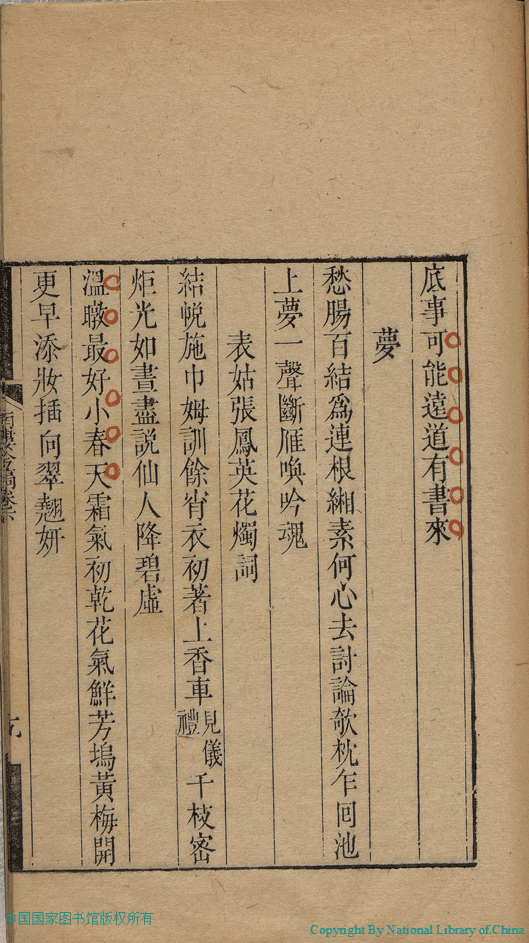 底事可能遠道有書來
夢
愁腸百結爲連根緗素何心去討論欹枕乍回池
上夢一聲斷雁喚吟魂
表姑張鳳英花燭詞
結帨施巾姆訓餘宵衣初著上香車見儀禮千枝密
炬光如晝盡説仙人降碧虛
溫暾最好小春天霜氣初乾花氣鮮芳塢黃梅開
更早添妝插向翠翹妍
卷六
九
中国国家图书馆版权所有
Copyright By National Library of China